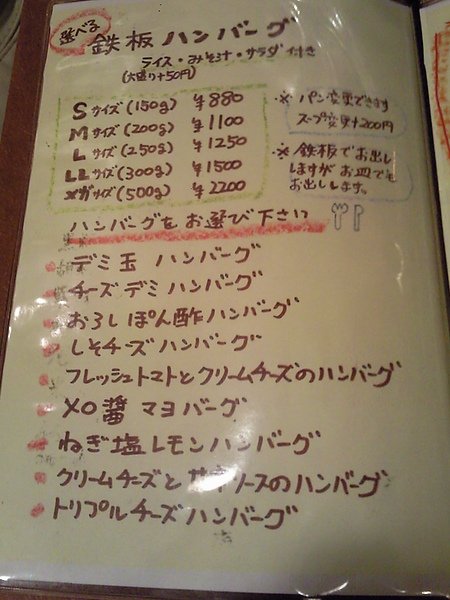 選べる
鉄板ハンバーグ
ライス・みそ汁・サラダ付き
(大盛り+50円)
Sサイズ(150g) ¥880
Mサイズ(200g) ¥1100
Lサイズ(250g) ¥1250
LLサイズ(300g) ¥1500
メガサイズ(500g) ¥2200
※ パン変更できます
スープ変更+200円
※ 鉄板でお出し
しますがお皿でも
お出しします。
ハンバーグをお選び下さい
デミ玉 ハンバーグ
チーズデミハンバーグ
おろしぽん酢ハンバーグ
しそチーズハンバーグ
フレッシュトマトとクリームチーズのハンバーグ
XO醤マヨバーグ
ねぎ塩レモンハンバーグ
クリームチーズと ソースのハンバーグ
トリプルチーズハンバーグ